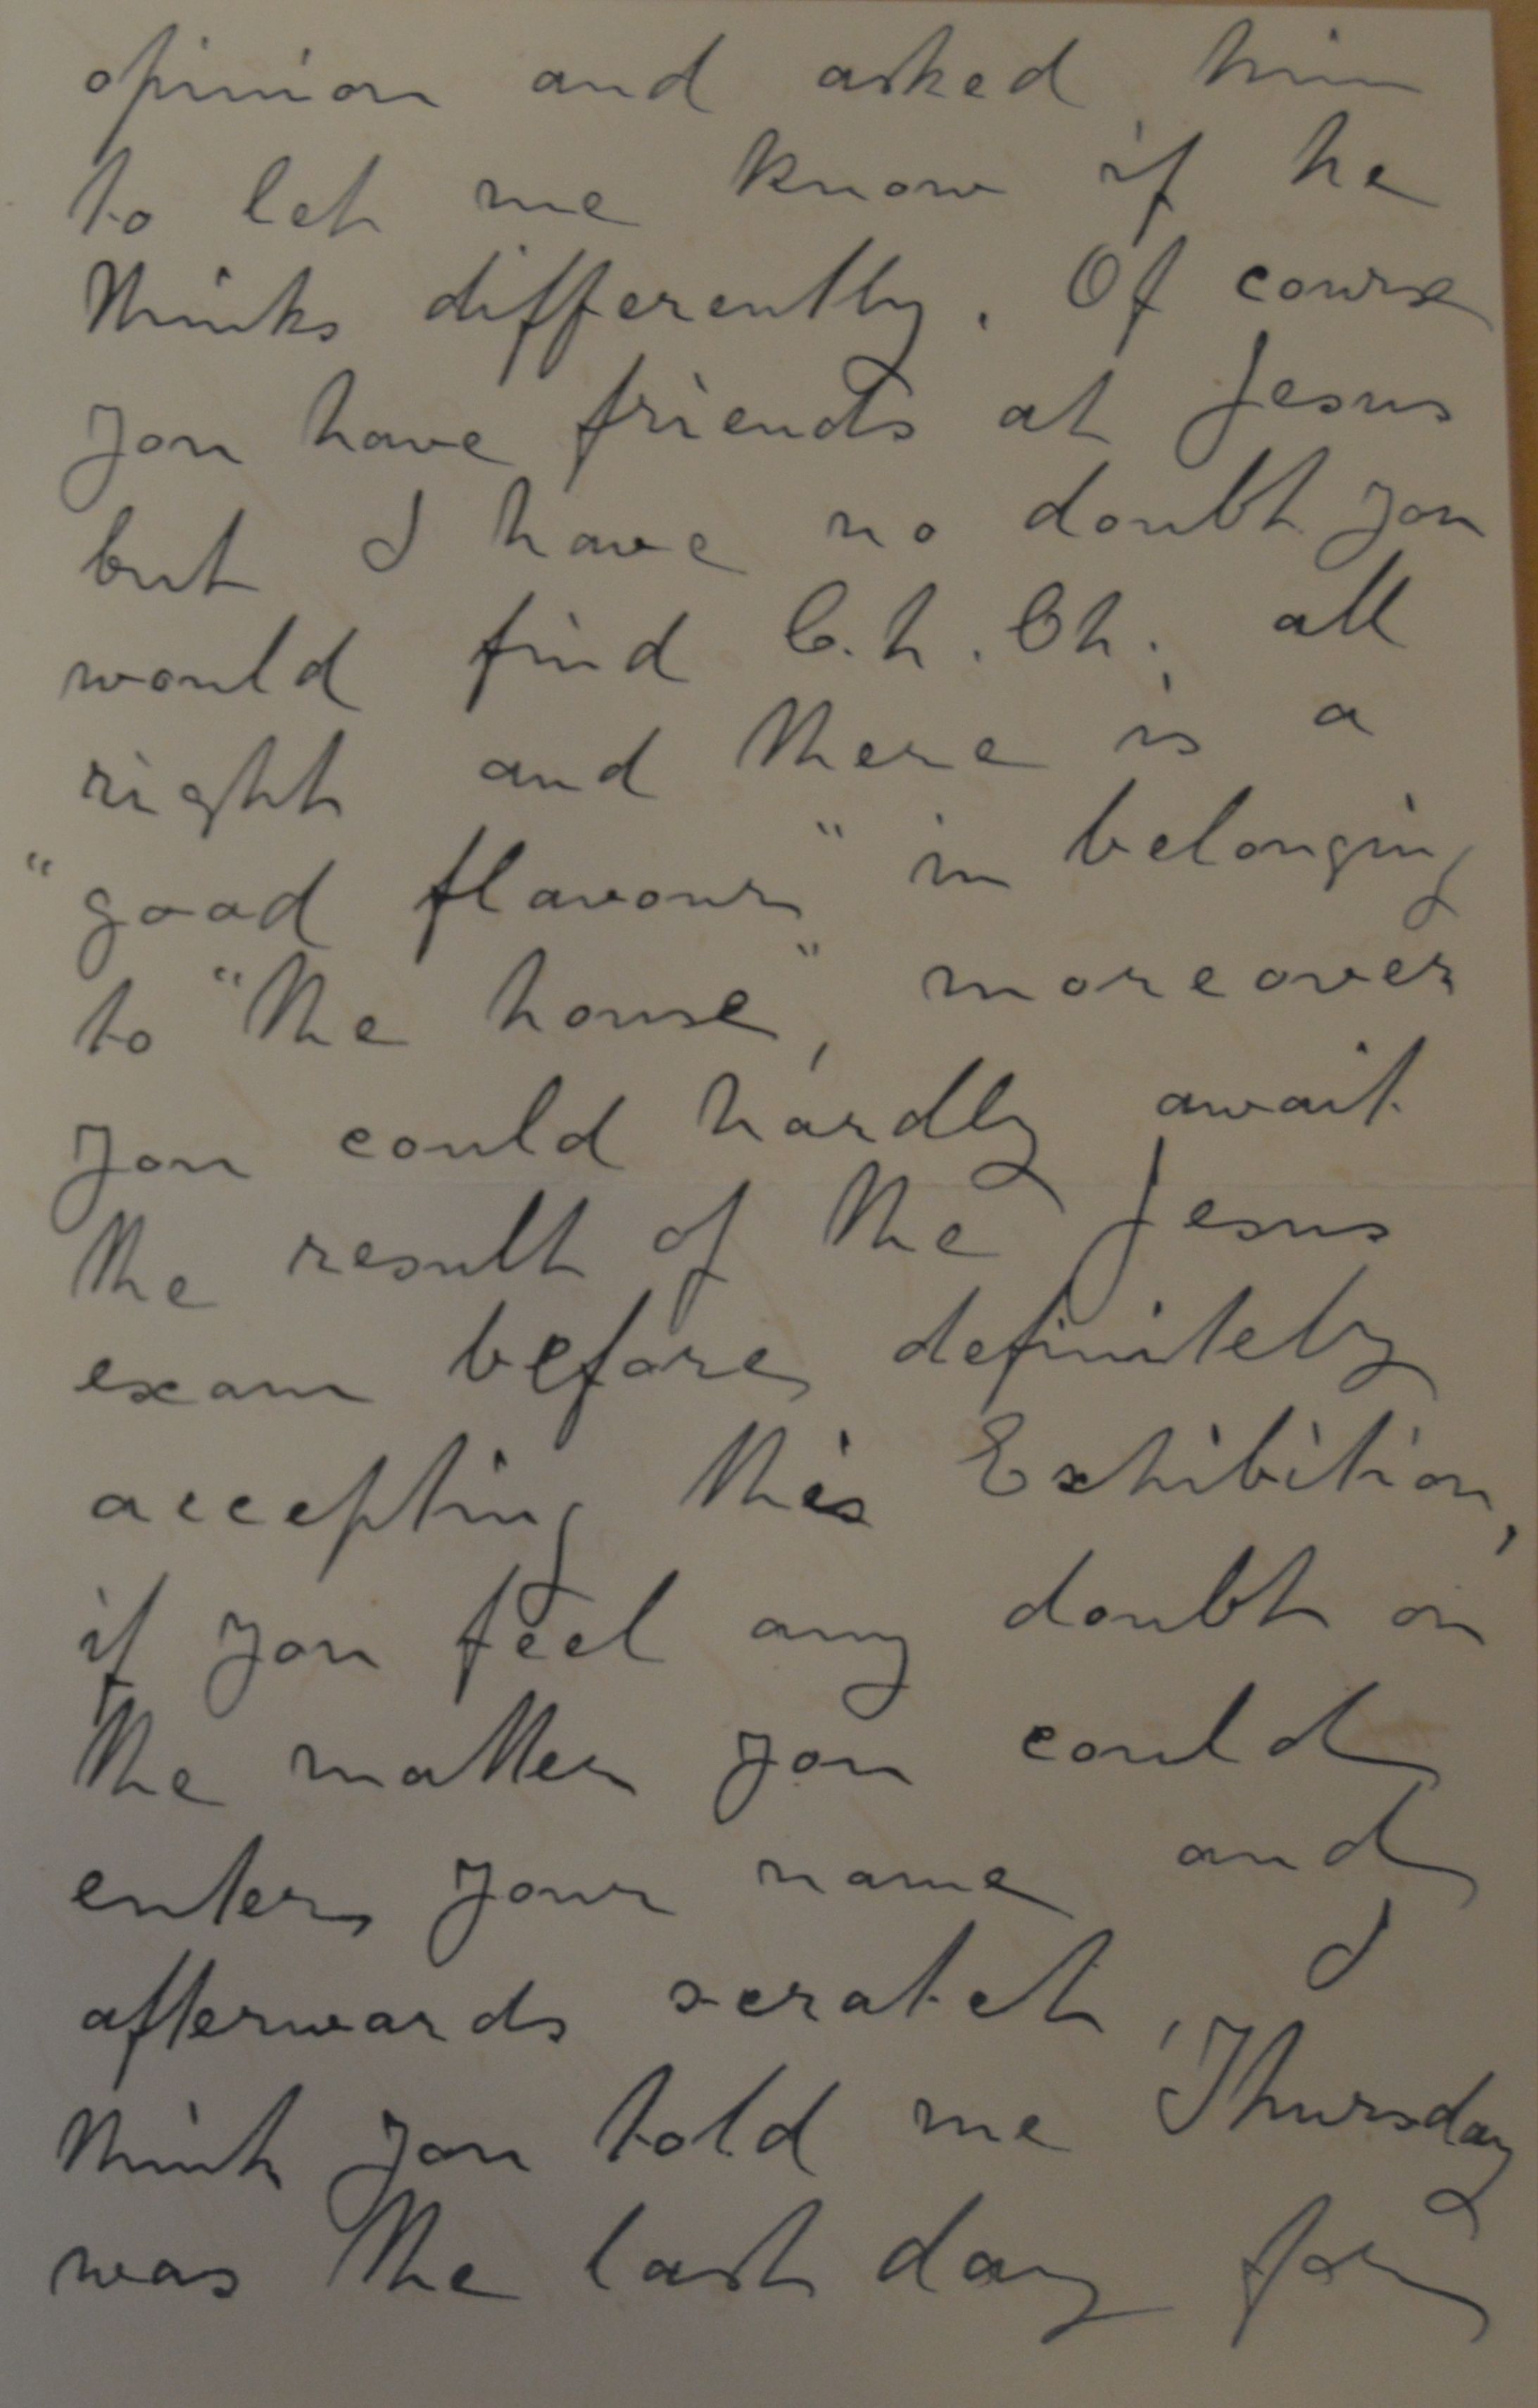 opinion and asked him
to let me know if he
thinks differently. Of course
you have friends at Jesus
but I have no doubt you
would find C.h. Ch. all
right and there is a
"good flavour" in belonging
to "the house", moreover
you could hardly await
the result of the Jesus
exam before definitely
accepting this Exhibition,
if you feel any doubt on
the matter you could
enter your name and
afterwards scratch, I
think you told me Thursday
was the last day for